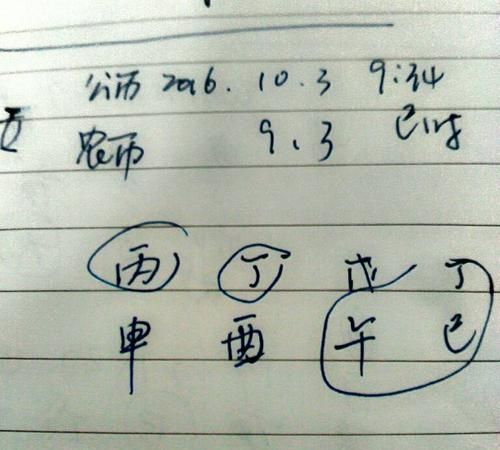 公历 2016. 10. 3 9:34
农历 9. 3 巳时
丙 丁 戊 丁
申 酉 午 巳